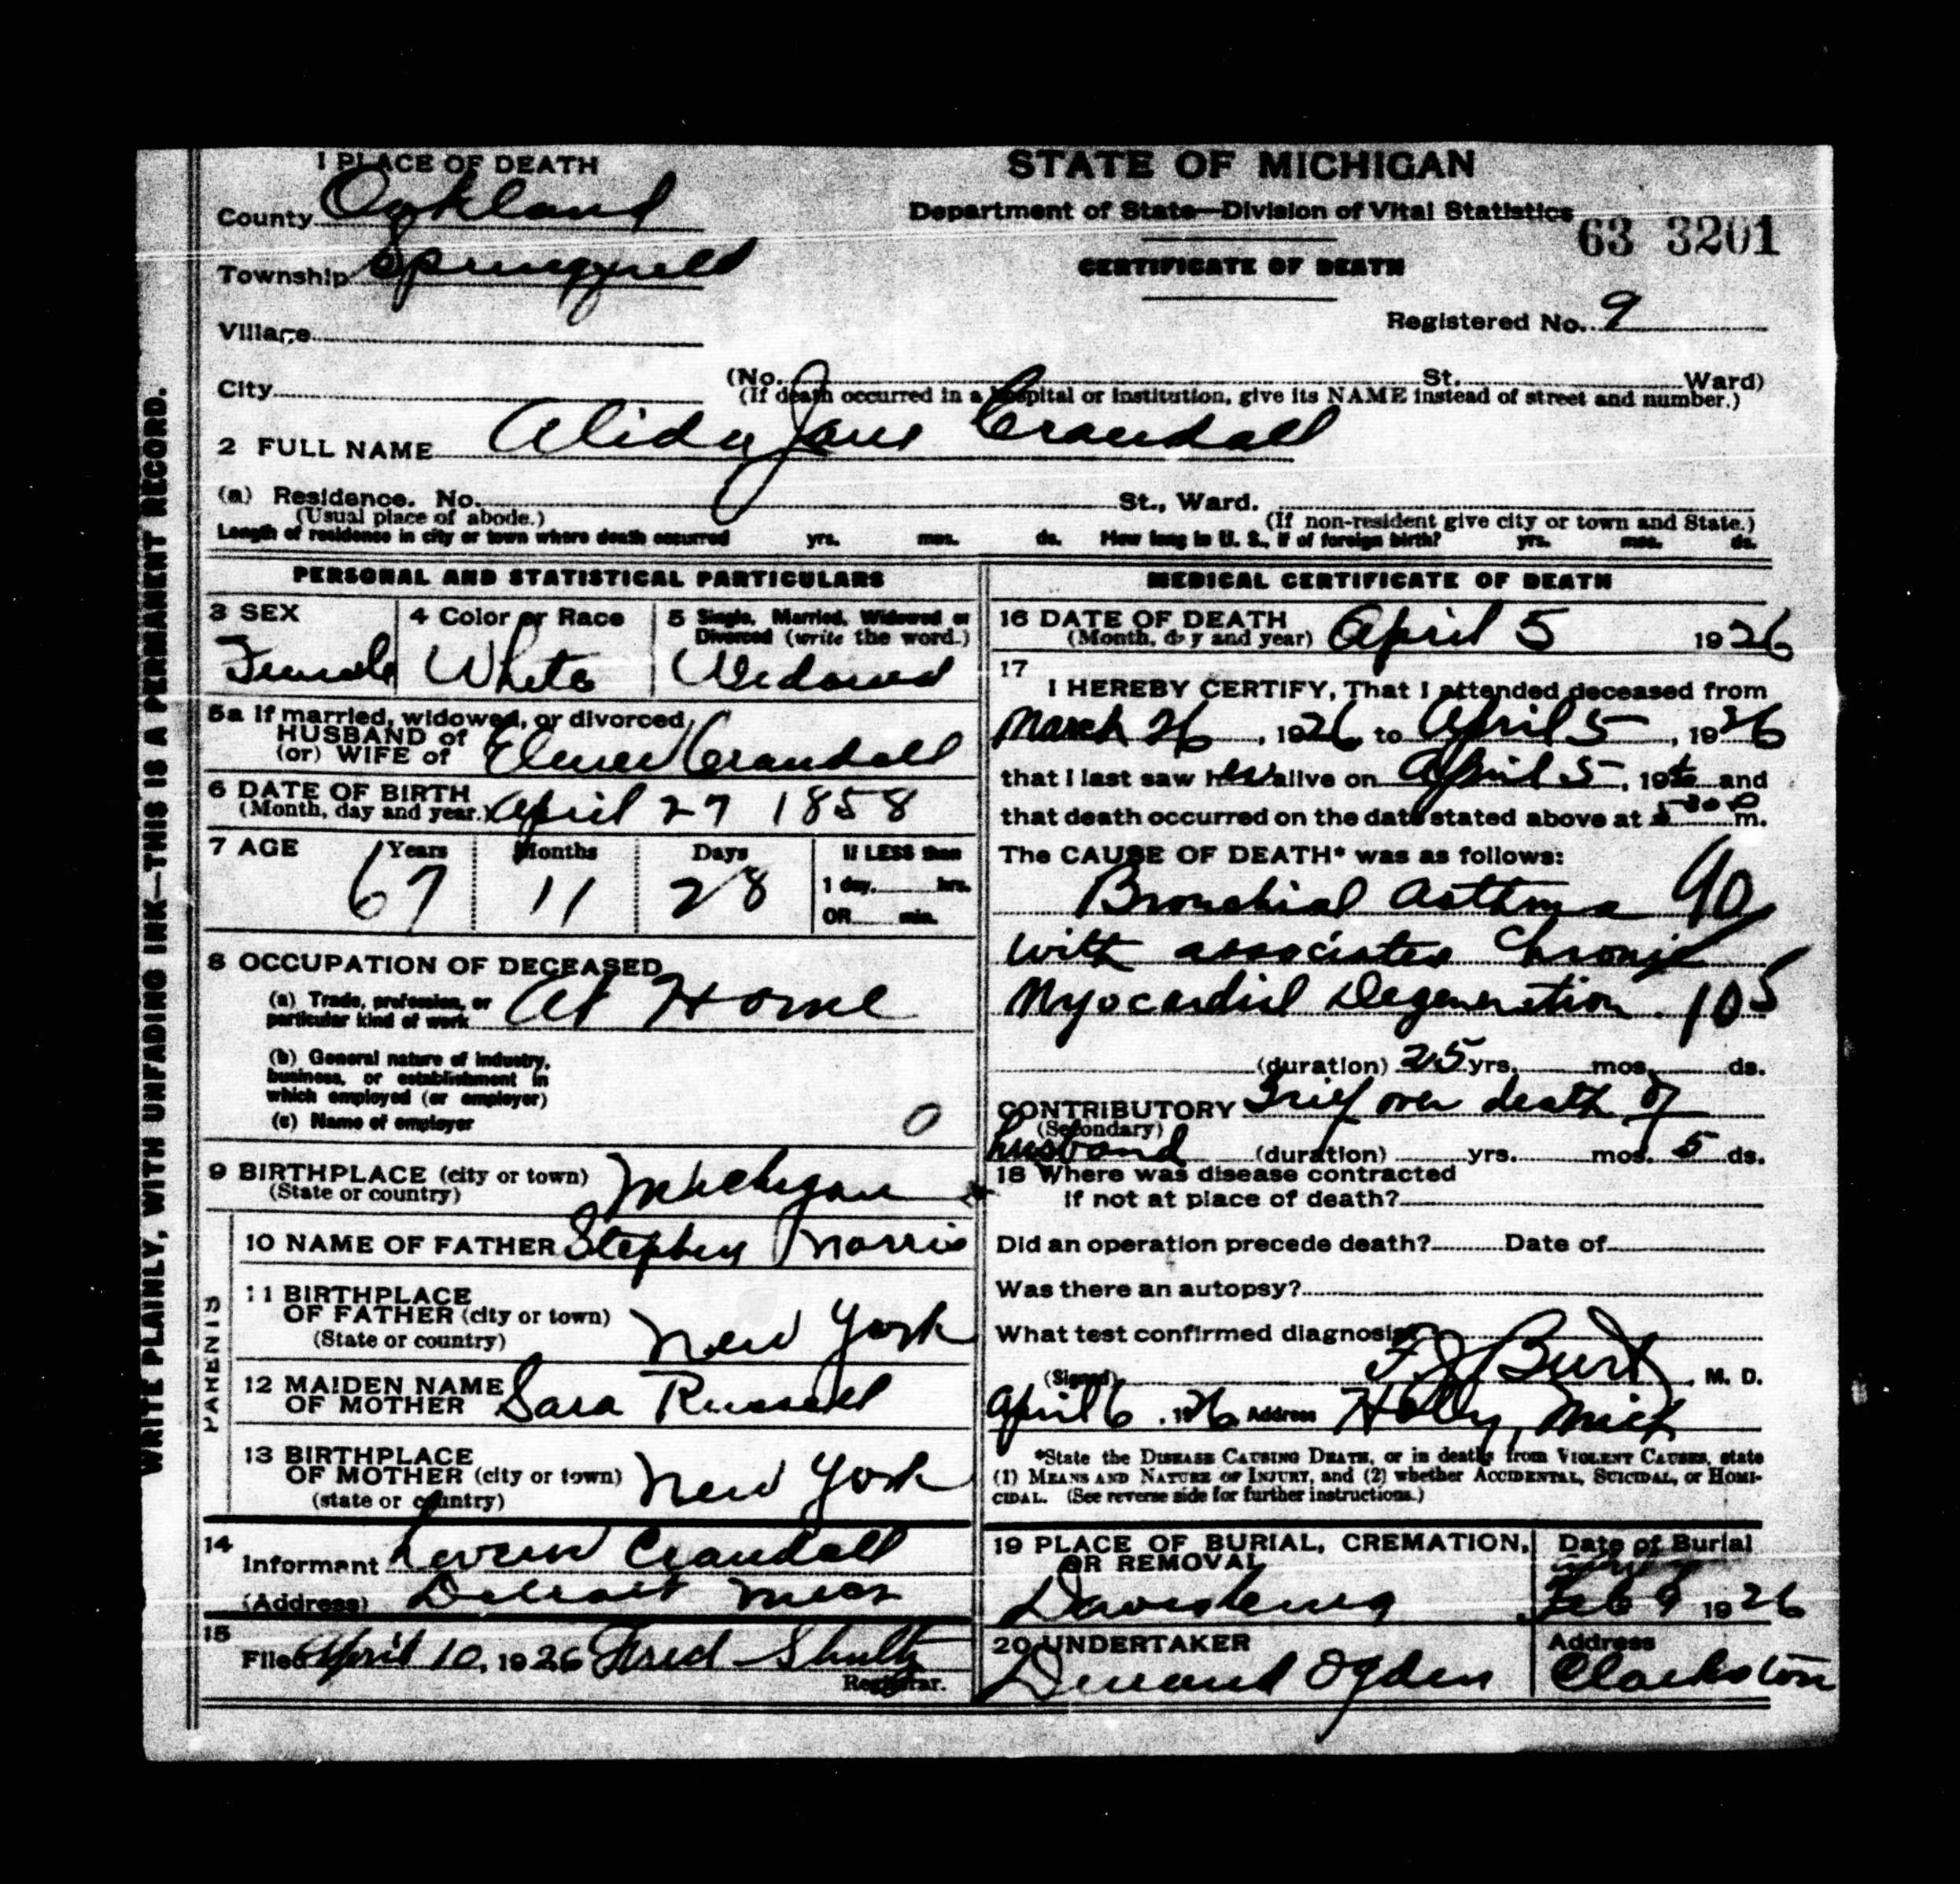 1 PLACE OF DEATH
STATE OF MICHIGAN
County Oakland
Department of State—Division of Vital Statistics
63 3201
Township Springfield
CERTIFICATE OF DEATH
Village
Registered No. 9
City (No. St. Ward)
(If death occurred in a hospital or institution, give its NAME instead of street and number.)
2 FULL NAME Alida Jane Crandall
(a) Residence. No. St., Ward.
(Usual place of abode.) (If non-resident give city or town and State.)
Length of residence in city or town where death occurred yrs. mos. ds. How long in U. S., if of foreign birth? yrs. mos. ds.
WRITE PLAINLY, WITH UNFADING INK—THIS IS A PERMANENT RECORD.
PERSONAL AND STATISTICAL PARTICULARS
3 SEX Female
4 Color or Race White
5 Single, Married, Widowed or
Divorced (write the word.)
Widowed
5a If married, widowed, or divorced
HUSBAND of
(or) WIFE of Elmer Crandall
6 DATE OF BIRTH
(Month, day and year.) April 27 1858
7 AGE Years Months Days If LESS than
67 11 28 1 day, hrs.
OR min.
8 OCCUPATION OF DECEASED
(a) Trade, profession, or
particular kind of work At Home
(b) General nature of industry,
business, or establishment in
which employed (or employer)
(c) Name of employer 0
9 BIRTHPLACE (city or town)
(State or country) Michigan
PARENTS
10 NAME OF FATHER Stephen Morris
11 BIRTHPLACE
OF FATHER (city or town)
(State or country) New York
12 MAIDEN NAME
OF MOTHER Sara Russell
13 BIRTHPLACE
OF MOTHER (city or town)
(state or country) New York
14
Informant Crandall
(Address) Detroit Mich
15
Filed April 10, 1926 Fred Shultz
Registrar.
MEDICAL CERTIFICATE OF DEATH
16 DATE OF DEATH
(Month, day and year) April 5 1926
17
I HEREBY CERTIFY, That I attended deceased from
March 26, 1926 to April 5, 1926
that I last saw her alive on April 5, 1926 and
that death occurred on the date stated above at 5 30 P m.
The CAUSE OF DEATH* was as follows:
Bronchial Asthma 90
with associated Chronic
Myocardial Degeneration. 105
(duration) 25 yrs. mos. ds.
CONTRIBUTORY Grief over death of
(Secondary)
husband (duration) yrs. mos. 5 ds.
18 Where was disease contracted
if not at place of death?
Did an operation precede death? Date of
Was there an autopsy?
What test confirmed diagnosis?
(Signed) F J Burt, M. D.
April 6, 1926 Address Holly, Mich
*State the DISEASE CAUSING DEATH, or in deaths from VIOLENT CAUSES, state
(1) MEANS AND NATURE OF INJURY, and (2) whether ACCIDENTAL, SUICIDAL, or HOMI-
CIDAL. (See reverse side for further instructions.)
19 PLACE OF BURIAL, CREMATION,
OR REMOVAL
Davisburg
Date of Burial
Feb 9 1926
20 UNDERTAKER
Durand Ogden
Address
Clarkston